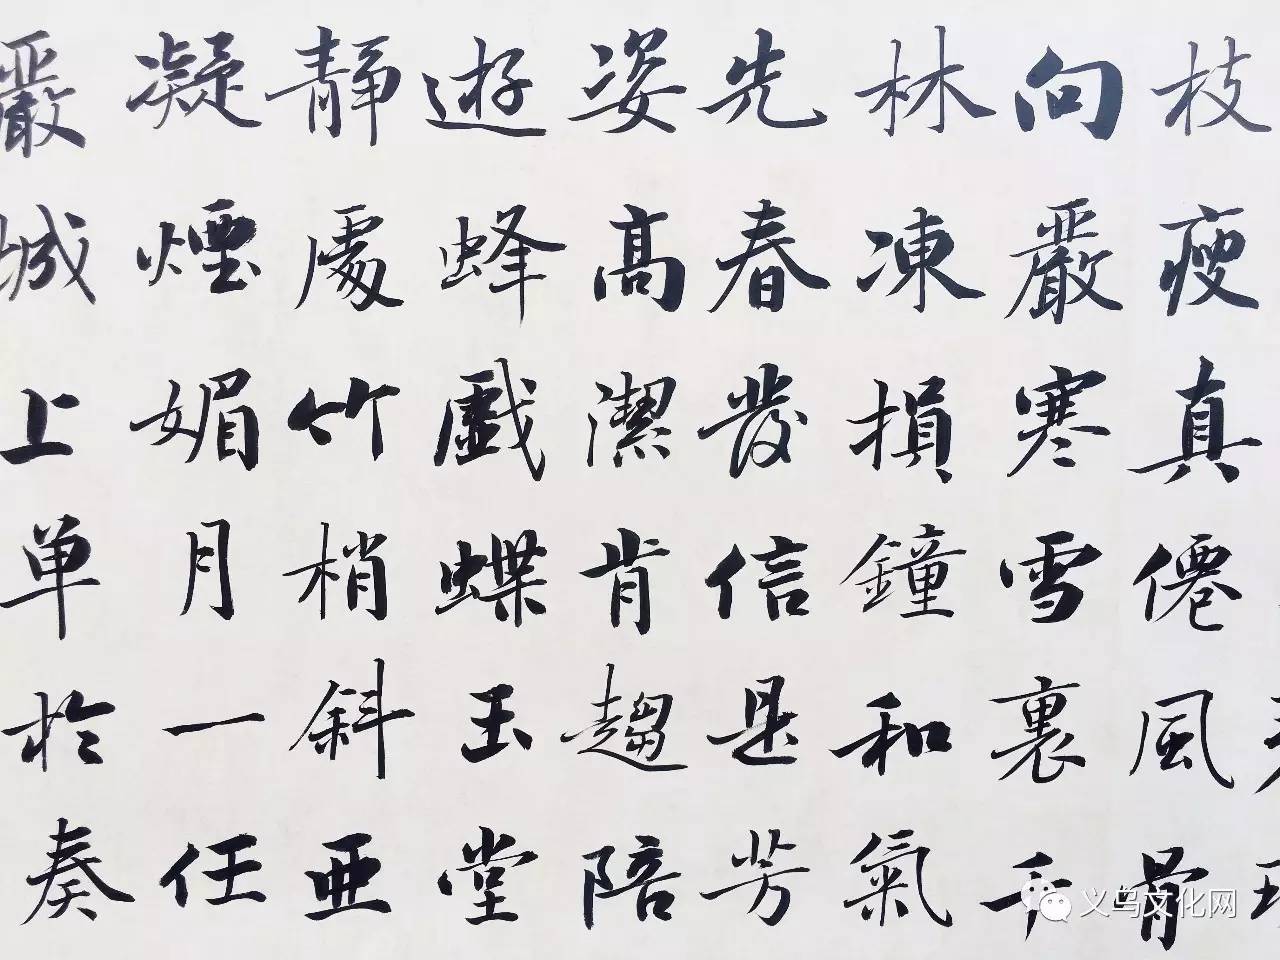 枝瘦真僊風骨
向嚴寒雪裏千
林凍損鐘和氣
先春發信是芳
姿高潔肯趨陪
遊蜂戲蝶玉堂
靜處竹梢斜亜
凝煙媚月一任
嚴城上単於奏
义乌文化网